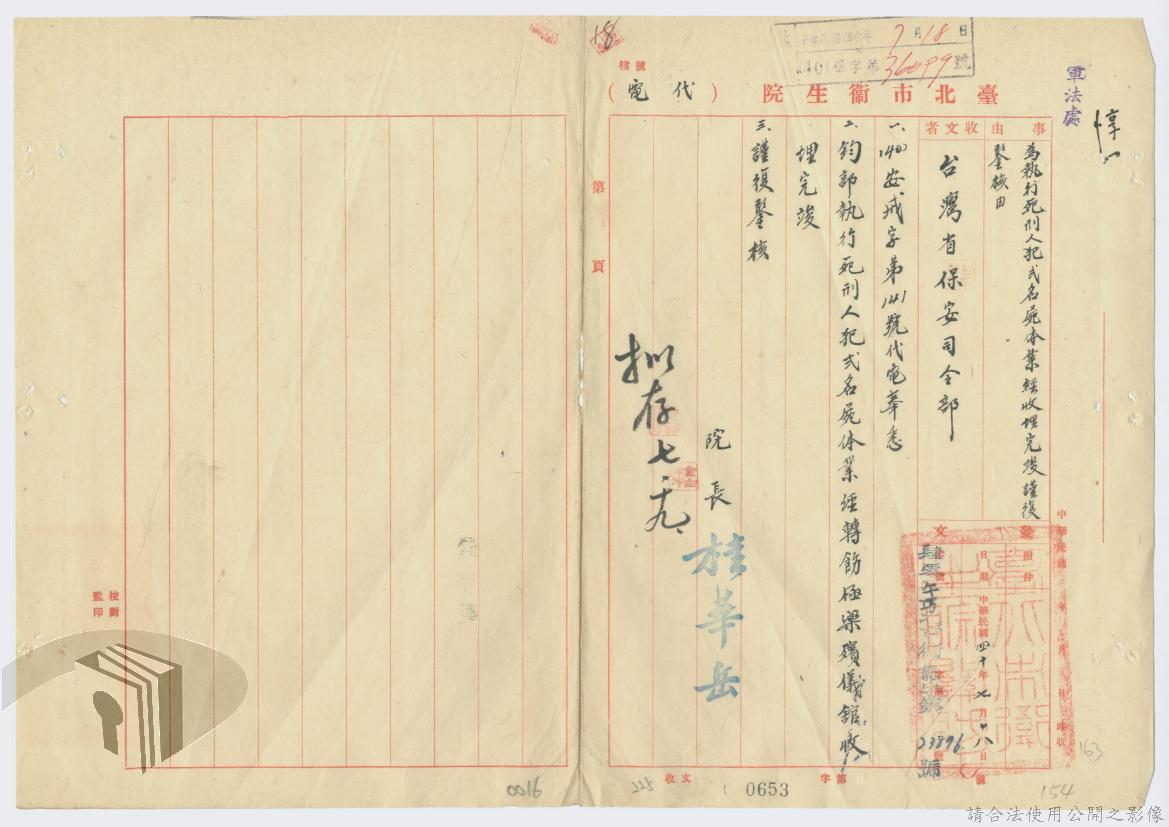 軍法處
7月18日
36099號
檔號
臺北市衛生院（代電）
事由
為執行死刑人犯弍名屍体業經收埋完竣謹復
鑒核由
收文者
台灣省保安司令部
發文
附件
日期
中華民國四十年七月十八日
23896號
一、(40)安戒字第141號代電奉悉
二、鈞部執行死刑人犯弍名屍体業經轉飭極樂殯儀館收
埋完竣
三、謹復鑒核
院長
桂華岳
擬存七.十九.
第頁
校對
監印
收文
字第
0653
0016
225
154
163
請合法使用公開之影像